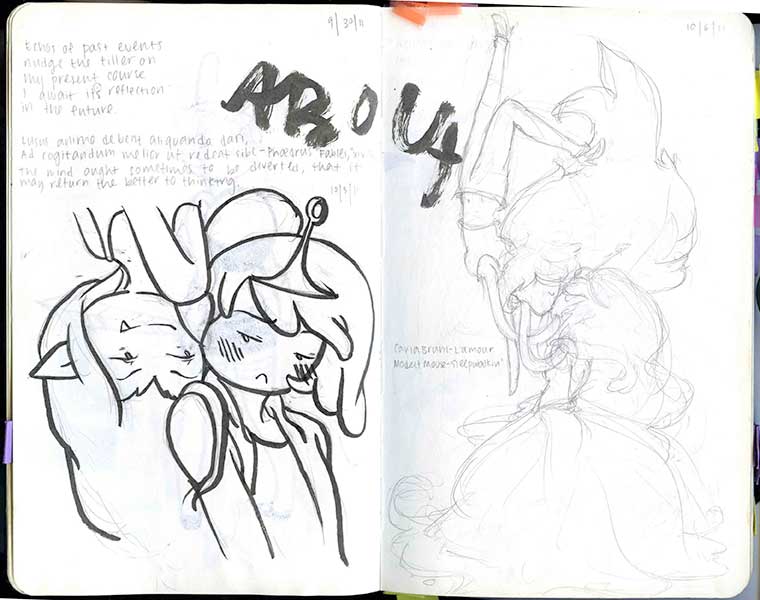 9/30/11
Echos of past events
nudge the tiller on
my present course
I await its reflection
in the future.
ABOUT
Lusus animo debent aliquando dari,
Ad cogitandum melior ut redeat sibi - Phaedrus' Fables,
The mind ought sometimes to be diverted, that it
may return the better to thinking.
10/3/11
10/6/11
Carla Bruni - L'amour
Modest Mouse - Sleepwalkin'